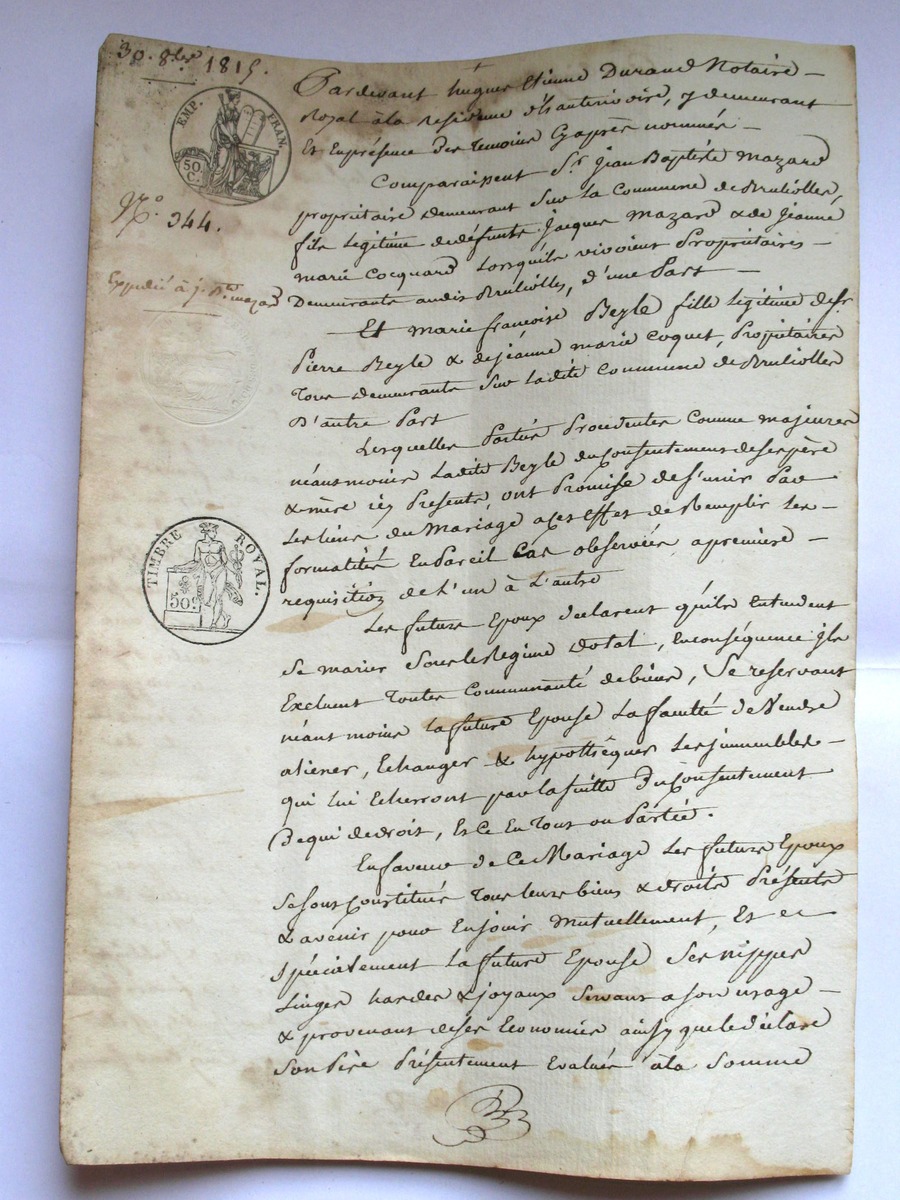 30. 8bre 1815.
EMP. FRAN.
50 C.
N.° 344.
Expédié à j. Bte mazard
TIMBRE ROYAL.
50 c
Pardevant hugues Etienne Durand Notaire
Royal à la Residence d'hauterivoire, y demeurant
Et En présence des temoins Cyaprès nommés
Comparaissent Sr. jean Baptiste Mazard
propriétaire demeurant Sur la Commune de Brulioles,
fils legitime de défunts Jacques Mazard & de Jeanne
marie Cocquard Lorsquils vivoient Propriétaires
Demeurants audit Brulioles, d'une Part
Et marie françoise Beyle fille legitime de Sr.
Pierre Beyle & de jeanne marie Coquet, Propriétaires
Tous demeurants Sur Ladite Commune de Brulioles
D'autre Part
Lesquelles Parties Procedentes Comme majeures
néanmoins Ladite Beyle du Consentement de ses père
& mère icy Presents, ont Promise de S'unir Par
Les liens du Mariage a Cet Effet de Remplir Les
formalités En Pareil Cas observées a premiere
requisition de L'un à L'autre
Les future Epoux déclarent qu'ils Entendent
Se marier Sous Le Regime Dotal, En conséquence ils
Excluent Toutes Communauté de biens, Se reservant
néant moins La future Epouse La faculté de Vendre
aliener, Echanger & hypothéquer Les immeubles
qui Lui Echerront par La suitte Du Consentement
De qui de droit, Est Ce En Tous ou Partie.
En faveur de Ce Mariage Les future Epoux
Se sont Constitués Tous leurs biens & droits Présents
& avenir pour En jouir Mutuellement, Et
Spécialement La future Epouse Ses nippes
Linges hardes & joyaux Servant a Son usage
& provenant de ses Economies ainsy que le déclare
Son Père Présentement Evalués à la Somme